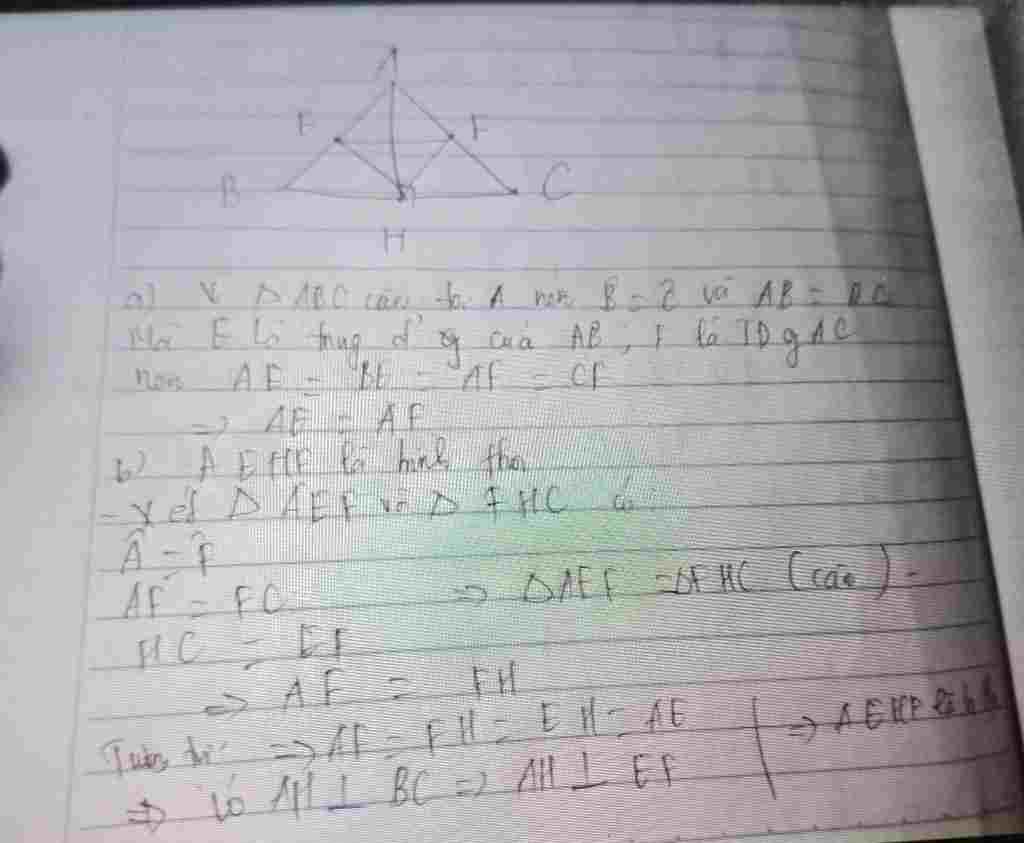 A
E F
B C
H
a) V Δ ABC cân tại A nên B = C và AB = AC
Mà E là trung đ' cuả AB, F là TD g AC
nên AE = BE = AF = CF
=> AE = AF
b) AEHF là hình thoi
- Xét Δ AEF và Δ FHC có:
Â = F̂
AF = FC => ΔAEF = ΔFHC (cgc) -
HC = EF
=> AF = FH
Tương tự => AF = FH = EH = AE => AEHF là
=> Có AH ⊥ BC => AH ⊥ EF